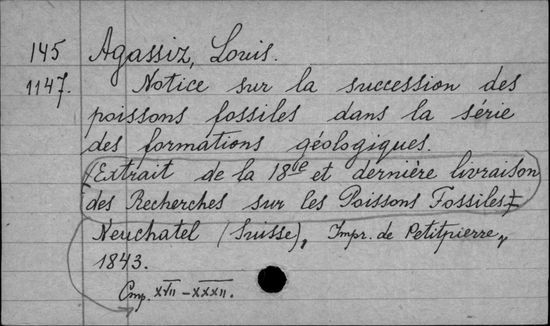 145 Agassiz, Louis.
1147. Notice sur la succession des
poissons fossiles dans la série
des formations géologiques.
(Extrait de la 18me et dernière livraison
des Recherches sur les Poissons Fossiles)
Neuchatel (Suisse), Impr. de Petitpierre,
1843.
Cmp. XVII-XXXII.